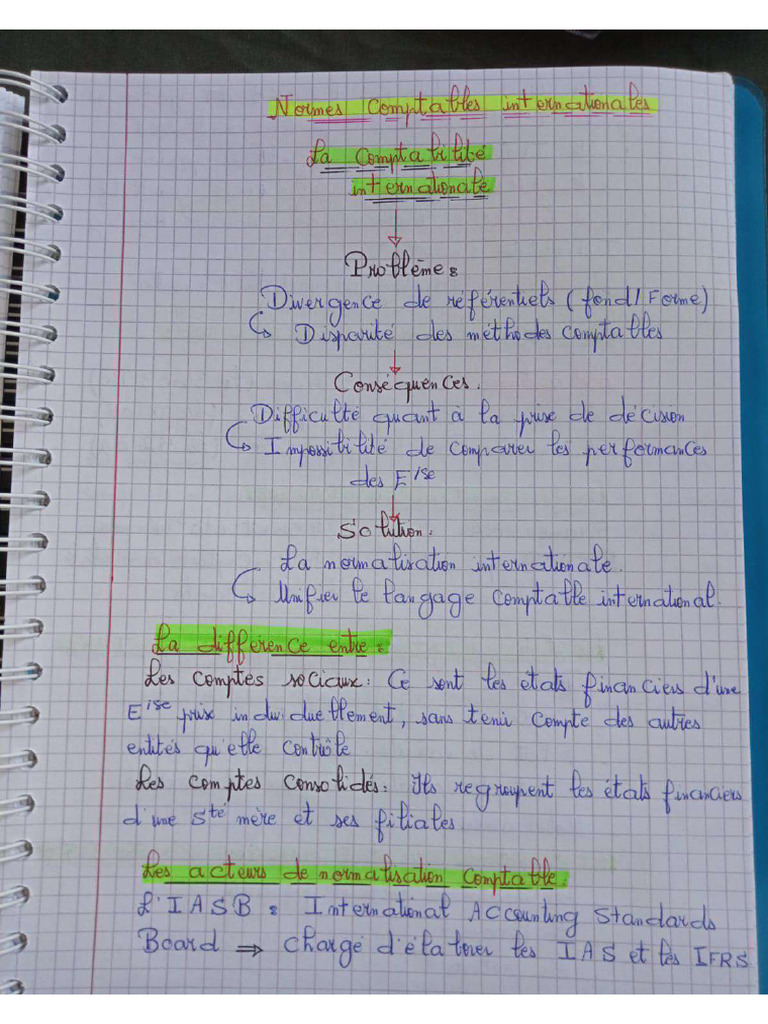 Normes Comptables internationales
La Comptabilité
internationale
Problème :
Divergence de référentiels (fond/Forme)
↳ Disparité des méthodes comptables
Conséquences.
Difficulté quant à la prise de décision
↳ Impossibilité de comparer les performances
des E/se
Solution :
La normalisation internationale.
↳ Unifier le langage comptable international.
La différence entre :
Les comptes sociaux : Ce sont les états financiers d'une
E/se prise individuellement, sans tenir compte des autres
entités qu'elle contrôle
Les comptes consolidés : Ils regroupent les états financiers
d'une Sté mère et ses filiales.
Les acteurs de normalisation Comptable.
L'IASB : International Accounting Standards
Board ⇒ chargé d'élaborer les IAS et les IFRS